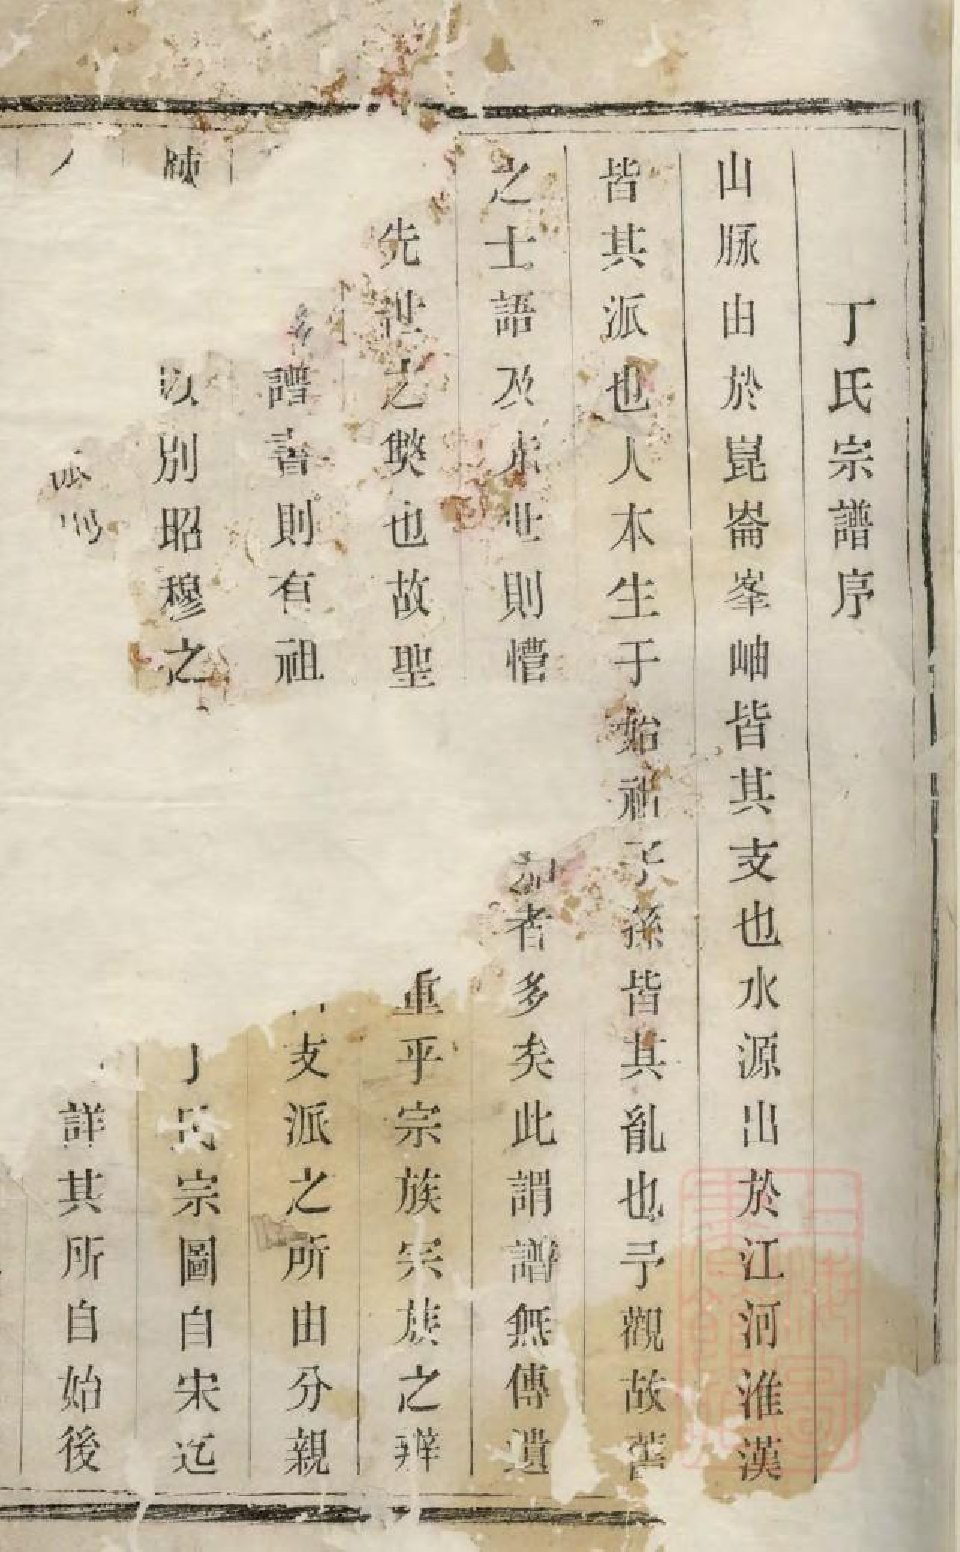 丁氏宗譜序
山脈由於崑崙峯岫皆其支也水源出於江河淮漢
皆其派也人本生于始祖子孫皆其亂也予觀故舊
之士語及來世則懵 者多矣此謂譜無傳遺
先世之弊也故聖 重乎宗族宗族之辨
譜書則有祖 支派之所由分親
以別昭穆之 丁氏宗圖自宋迄
詳其所自始後